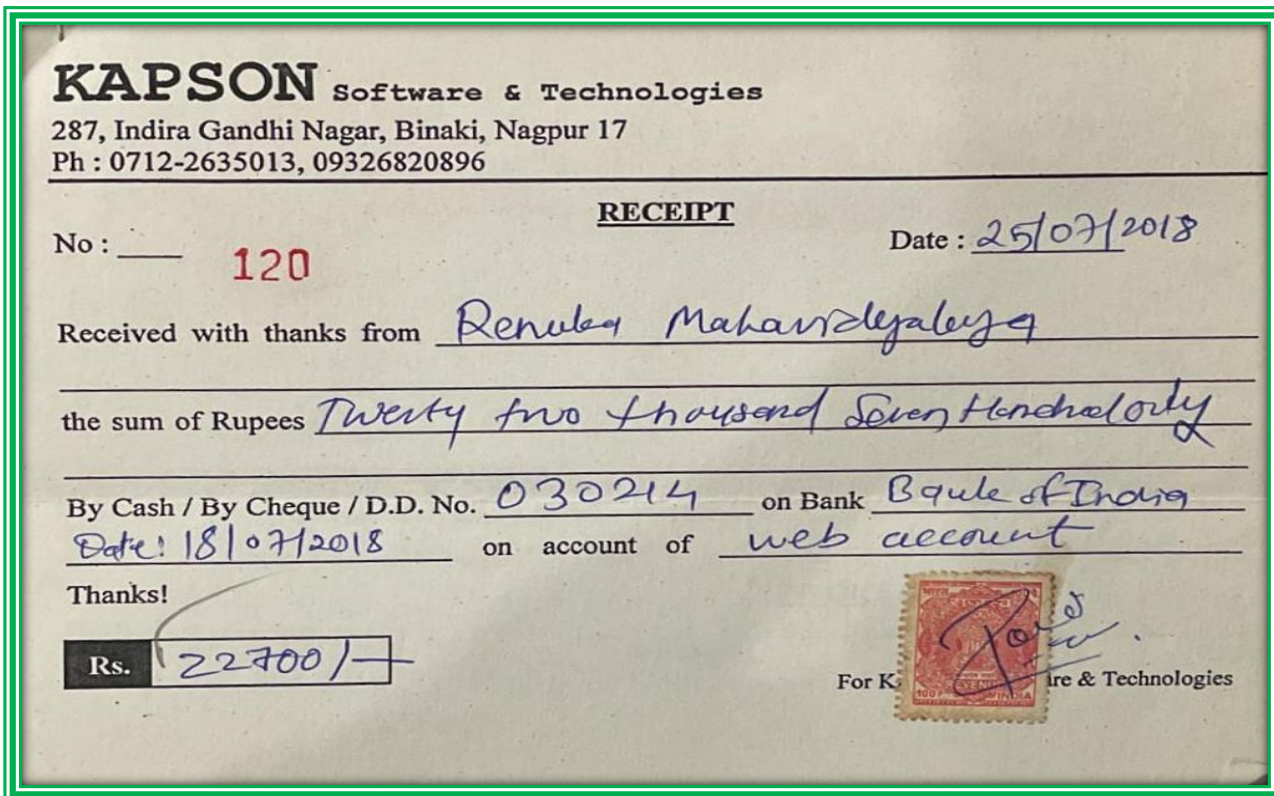 KAPSON Software & Technologies
287, Indira Gandhi Nagar, Binaki, Nagpur 17
Ph : 0712-2635013, 09326820896
RECEIPT
No : ___ 120
Date : 25/07/2018
Received with thanks from Renuka Mahavidyalaya
the sum of Rupees Twenty two thousand Seven Hundred only
By Cash / By Cheque / D.D. No. 030214 on Bank Bank of India
Date: 18/07/2018 on account of web account
Thanks!
Rs. 22700/-
For K are & Technologies
100 EVENU INDIA